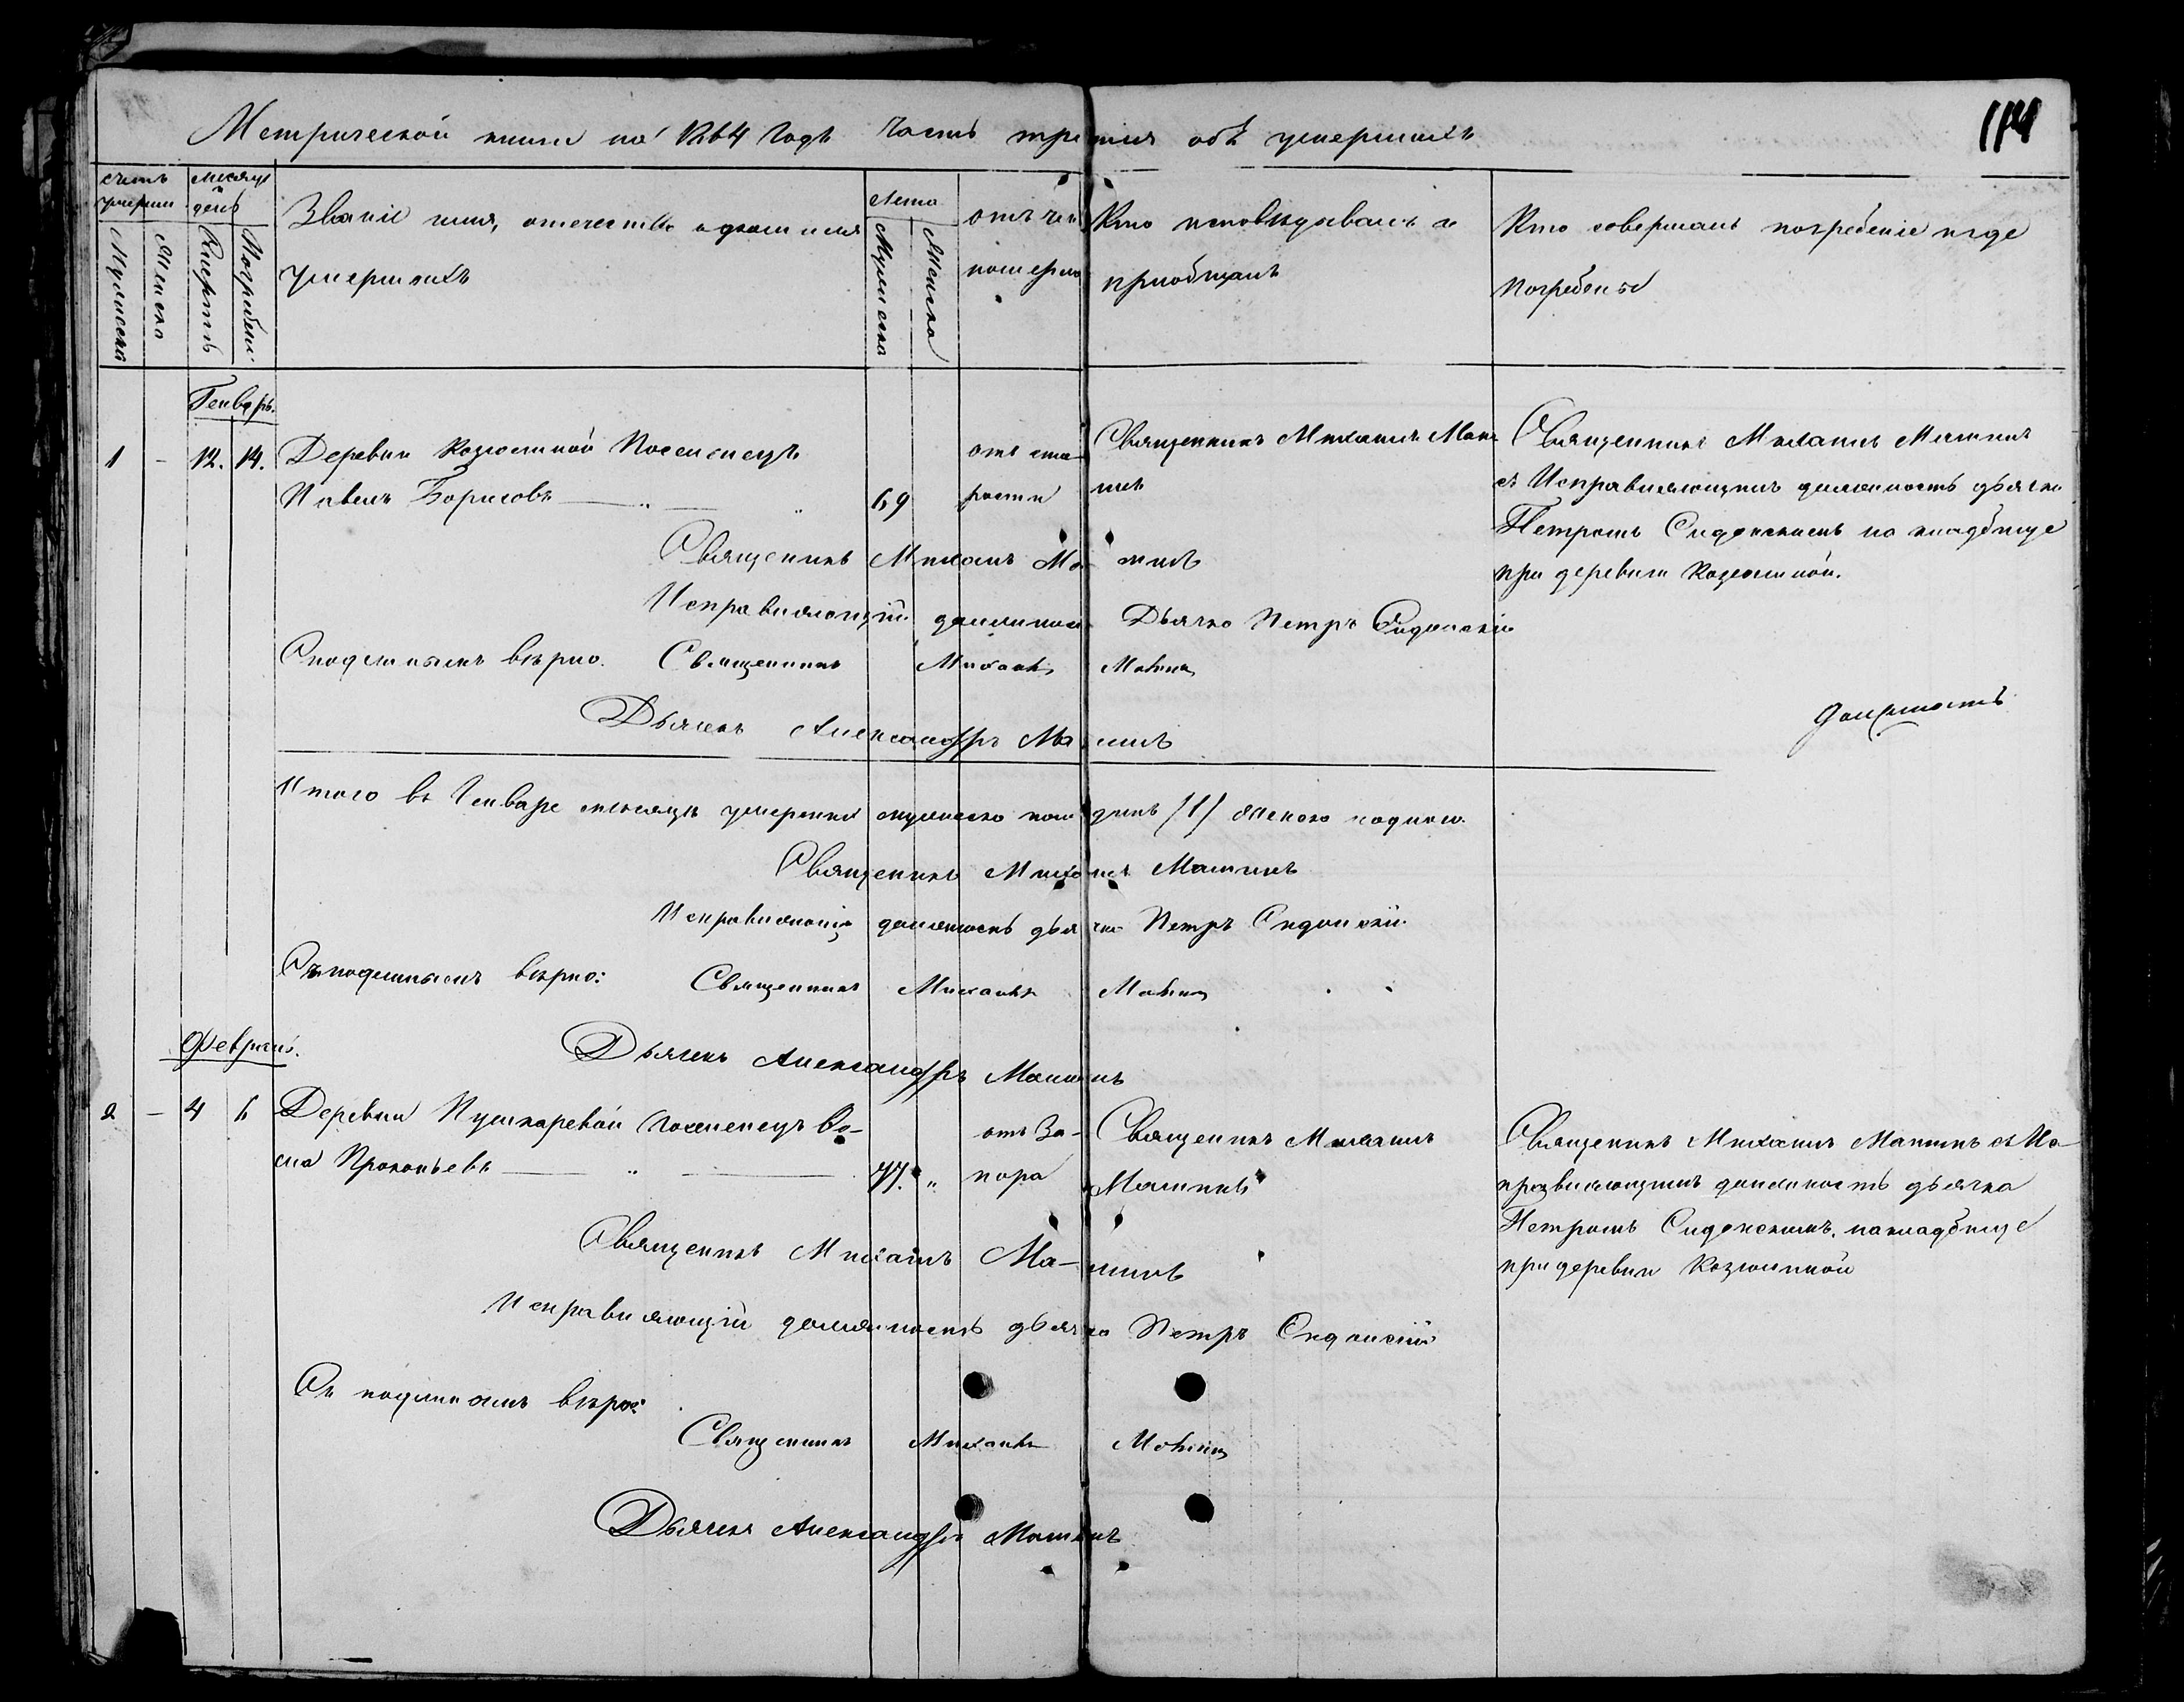 Метрической книги на 1864 годъ часть третия объ умершихъ
114
счетъ умерши
Мужеска
Женска
месяцъ и день
Смерти
Погребен.
Званіе имя, отечество и фамилия
умершихъ
Лета
Мужеска
Женска
отъ чего
померъ
Кто исповѣдывалъ и
приобщалъ
Кто совершалъ погребеніе и где
погребены
Генварь.
1 - 12. 14. Деревни Козюлиной Поселенецъ
Павелъ Борисовъ — „ — „ 69
отъ ста-
рости
Священникъ Михаилъ Мали-
нинъ
Священникъ Михаилъ
съ Исправляющимъ должность дьячка
Петромъ Сидонскимъ на кладбище
при деревни Козюлиной.
Священникъ Михаилъ
Исправляющій должность Дьячка Петръ Сидонскій
Споделинымъ вѣрно. Священникъ Михаилъ
Дьячекъ Александръ
должность
Итого въ Генваре месяцѣ умершихъ мужеска пола одинъ /1/ женска ни одного.
Священникъ Михаилъ
Исправляющій должность дьячка Петръ Сидонскій.
Съ подлиннымъ вѣрно: Священникъ Михаилъ
Дьячекъ Александръ
Февраль.
2 - 4 6 Деревни Пушкаревой поселенецъ
Прокопьевъ — „ — 77. „
отъ За-
пора
Священникъ Михаилъ
Священникъ Михаилъ съ Ис-
правляющимъ должность дьячка
Петромъ Сидонскимъ. на кладбище
при деревни Козюлиной
Священникъ Михаилъ
Исправляющій должность дьячка Петръ Сидонскій
Съ подлиннымъ вѣрно:
Священникъ Михаилъ
Дьячекъ Александръ